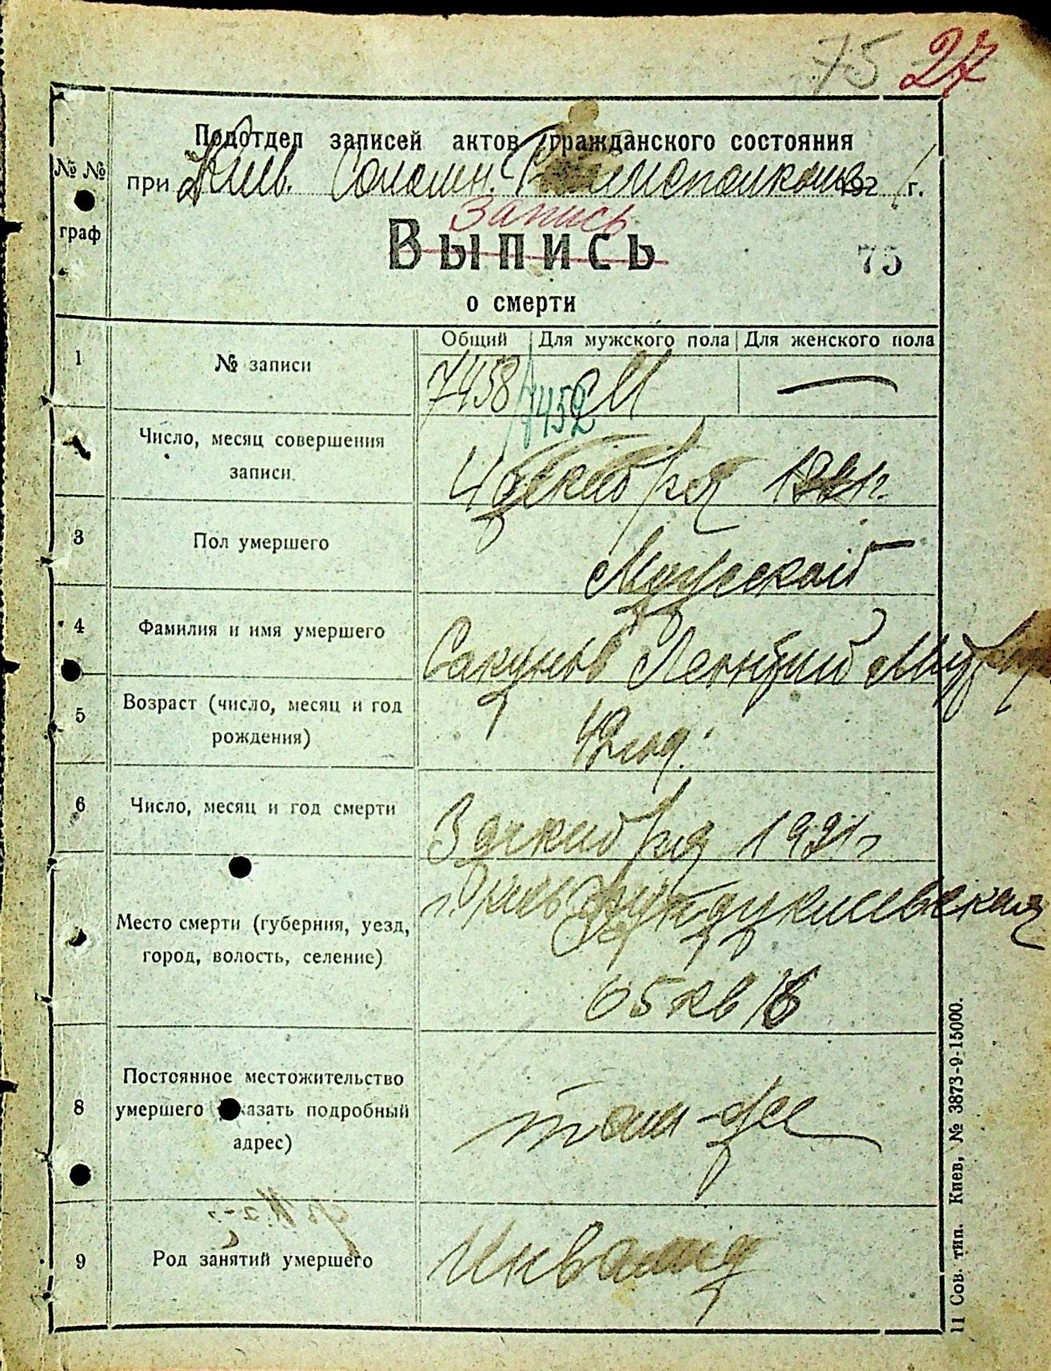 75 27
Подотдел записей актов гражданского состояния
№ №
при Киев. 192 1 г.
Запись
граф
Выпись
75
о смерти
Общий Для мужского пола Для женского пола
1 № записи 7458 М —
7452
Число, месяц совершения
записи
4 октября 1921 г.
3 Пол умершего Мужской
4 Фамилия и имя умершего
5 Возраст (число, месяц и год
рождения)
42 год.
6 Число, месяц и год смерти 3 октября 1921 г
Место смерти (губерния, уезд,
город, волость, селение)
г. Киев Фундуклеевская
65 кв 16
Постоянное местожительство
8 умершего казать подробный
адрес)
там-же
9 Род занятий умершего Инвалид
11 Сов. тип. Киев, № 3873-9-15000.